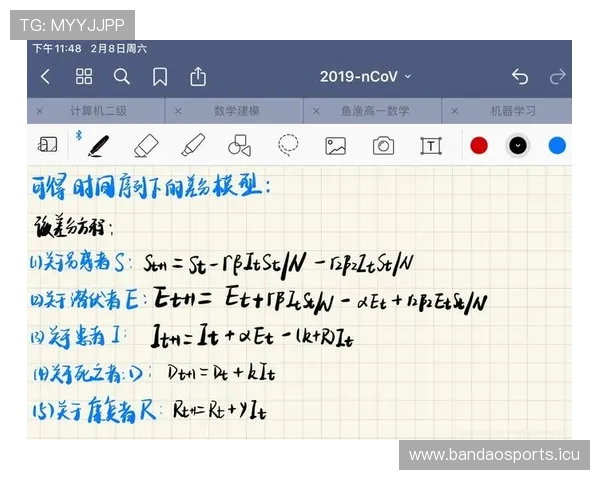 TG: MYYJJPP
下午11:48 2月8日周六
2019-nCoV
× 计算机二级 × 数学建模 × 鱼渔高一数学 × 机器学习
T
可得时间序列下的差分模型:
设差分方程:
(1)关于易感者S: St+1 = St - rβItSt/N - r2β2ItSt/N
(2)关于潜伏者E: Et+1 = Et + rβItSt/N - αEt + r2β2EtSt/N
(3)关于患者I: It+1 = It + αEt - (k+R)It
(4)关于死亡者:D: Dt+1 = Dt + kIt
(5)关于康复者R: Rt+1 = Rt + γIt
www.bandaosports.icu